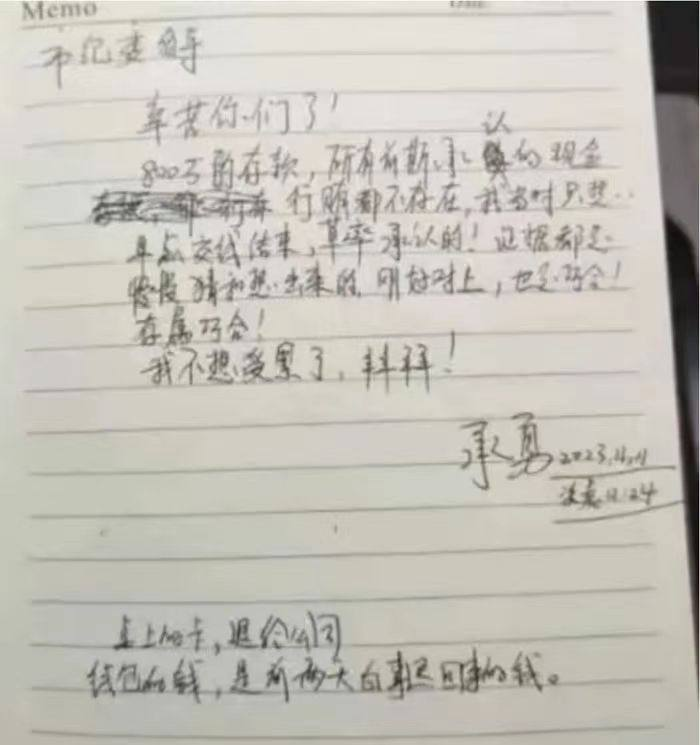 Memo
市纪委领导
辛苦你们了!
认
800万的存款,所有前期承 的现金
行贿都不存在,我当时只想
早点交线结束,草率承认的!证据都是
猜和想出来的,刚好对上,也是巧合!
存属巧合!
我不想受累了,拜拜!
承勇 2023.11.11
凌晨11:24
桌上的卡,退给公司
钱包的钱,是前两天白事 回来的钱。